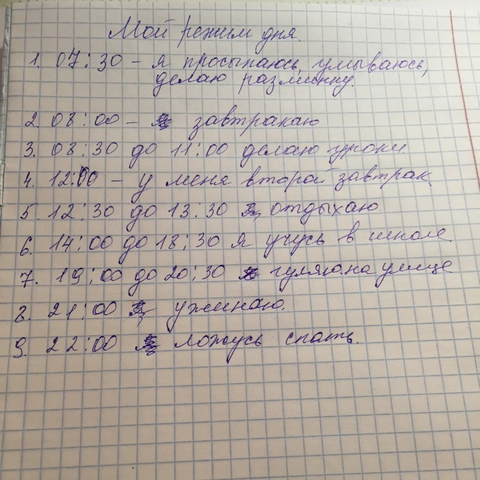 Мой режим дня.
1. 07:30 – я просыпаюсь, умываюсь,
делаю разминку.
2. 08:00 – завтракаю
3. 08:30 до 11:00 делаю уроки
4. 12:00 – у меня второй завтрак
5. 12:30 до 13:30 отдыхаю
6. 14:00 до 18:30 я учусь в школе
7. 19:00 до 20:30 гуляю на улице
8. 21:00 ужинаю.
9. 22:00 ложусь спать.